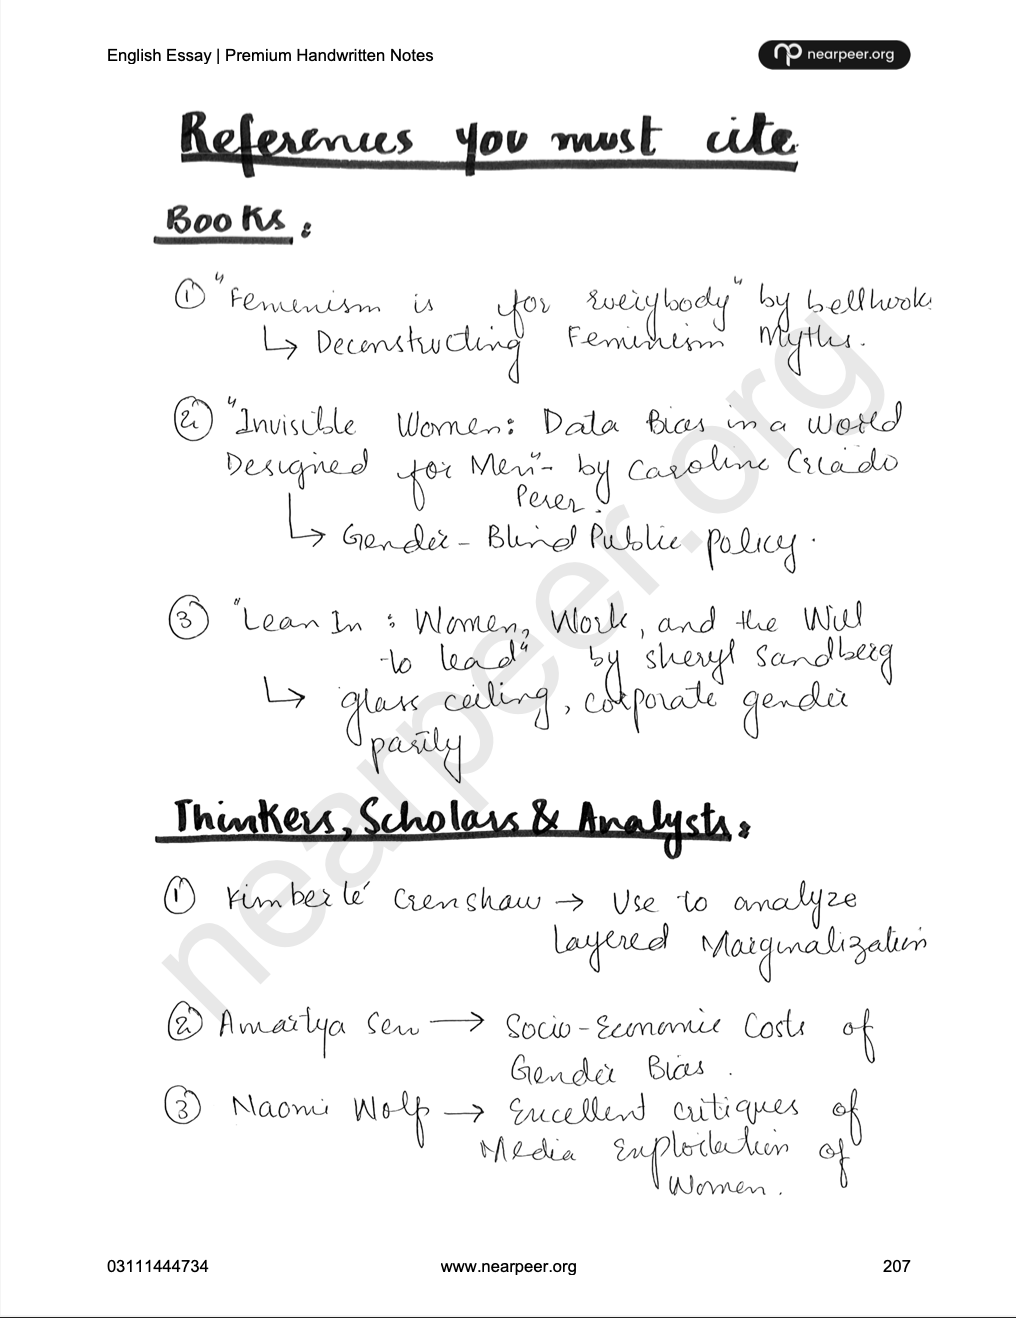 English Essay | Premium Handwritten Notes
nearpeer.org
References you must cite
Books:
① "Femenism is for Everybody" by bellhooks
↳ Deconstructing Feminism Myths.
② "Invisible Women: Data Bias in a World
Designed for Men" - by Caroline Criado
Perez.
↳ Gender-Blind Public policy.
③ "Lean In: Women, Work, and the Will
to lead" by sheryl sandberg
↳ glass ceiling, corporate gender
parity
Thinkers, Scholars & Analysts:
① Kimberlé Crenshaw → Use to analyze
Layered Marginalization
② Amartya Sen → Socio-Economic Costs of
Gender Bias.
③ Naomi Wolf → Excellent critiques of
Media Exploitation of
Women.
nearpeer.org
03111444734 www.nearpeer.org 207